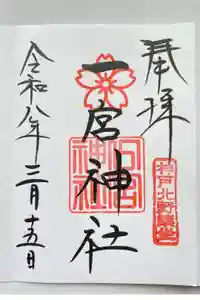 奉拝
一宮神社
令和八年三月十五日
神戸北野鎮座